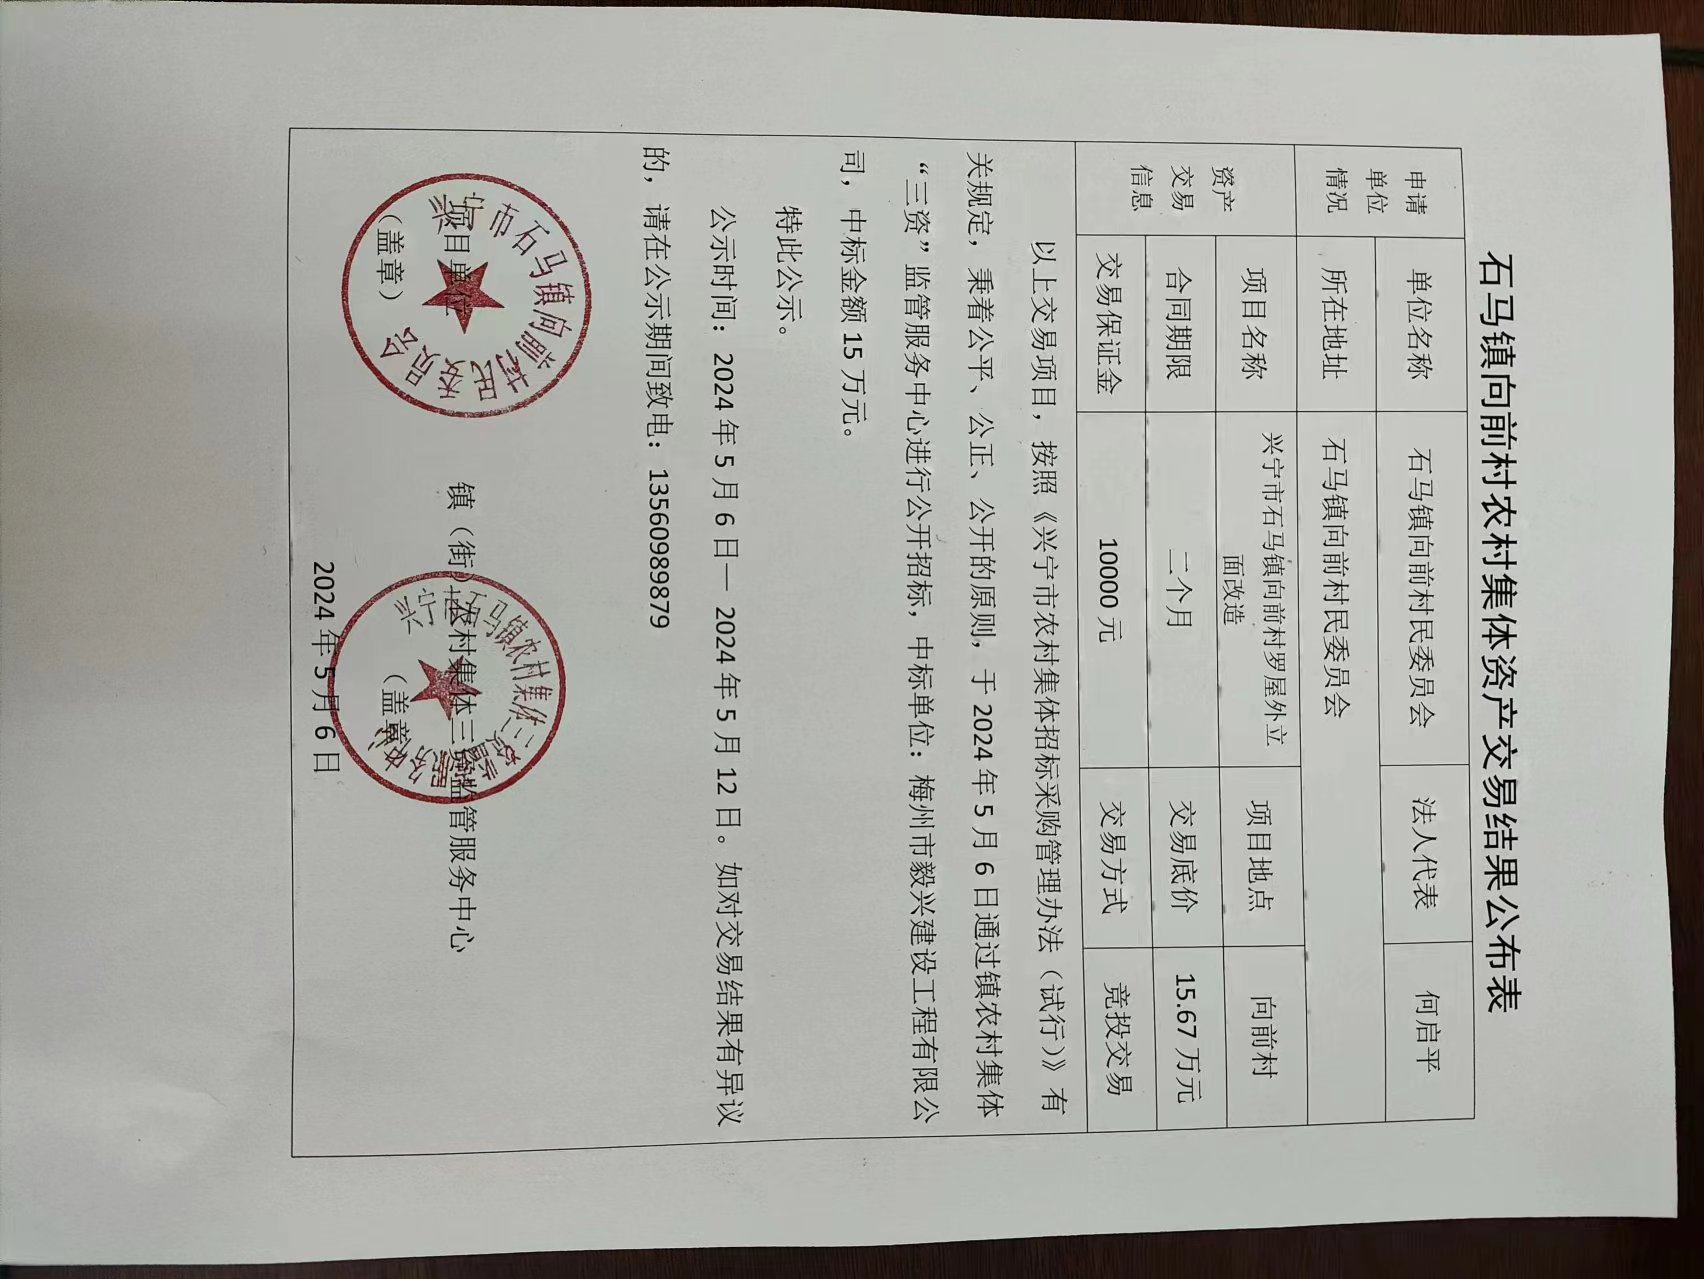 石马镇向前村农村集体资产交易结果公布表
申请
单位
情况
单位名称
石马镇向前村民委员会
法人代表
何启平
所在地址
石马镇向前村民委员会
资产
交易
信息
项目名称
兴宁市石马镇向前村罗屋外立
面改造
项目地点
向前村
合同期限
二个月
交易底价
15.67 万元
交易保证金
10000 元
交易方式
竞投交易
以上交易项目，按照《兴宁市农村集体招标采购管理办法（试行）》有
关规定，秉着公平、公正、公开的原则，于 2024 年 5 月 6 日通过镇农村集体
“三资”监管服务中心进行公开招标，中标单位：梅州市毅兴建设工程有限公
司，中标金额 15 万元。
特此公示。
公示时间：2024 年 5 月 6 日— 2024 年 5 月 12 日。如对交易结果有异议
的，请在公示期间致电：13560989879
项目单位
（盖章）
兴宁市石马镇向前村民委员会
镇（街）农村集体三资监管服务中心
（盖章）
兴宁市石马镇农村集体三资监管服务中心
2024 年 5 月 6 日